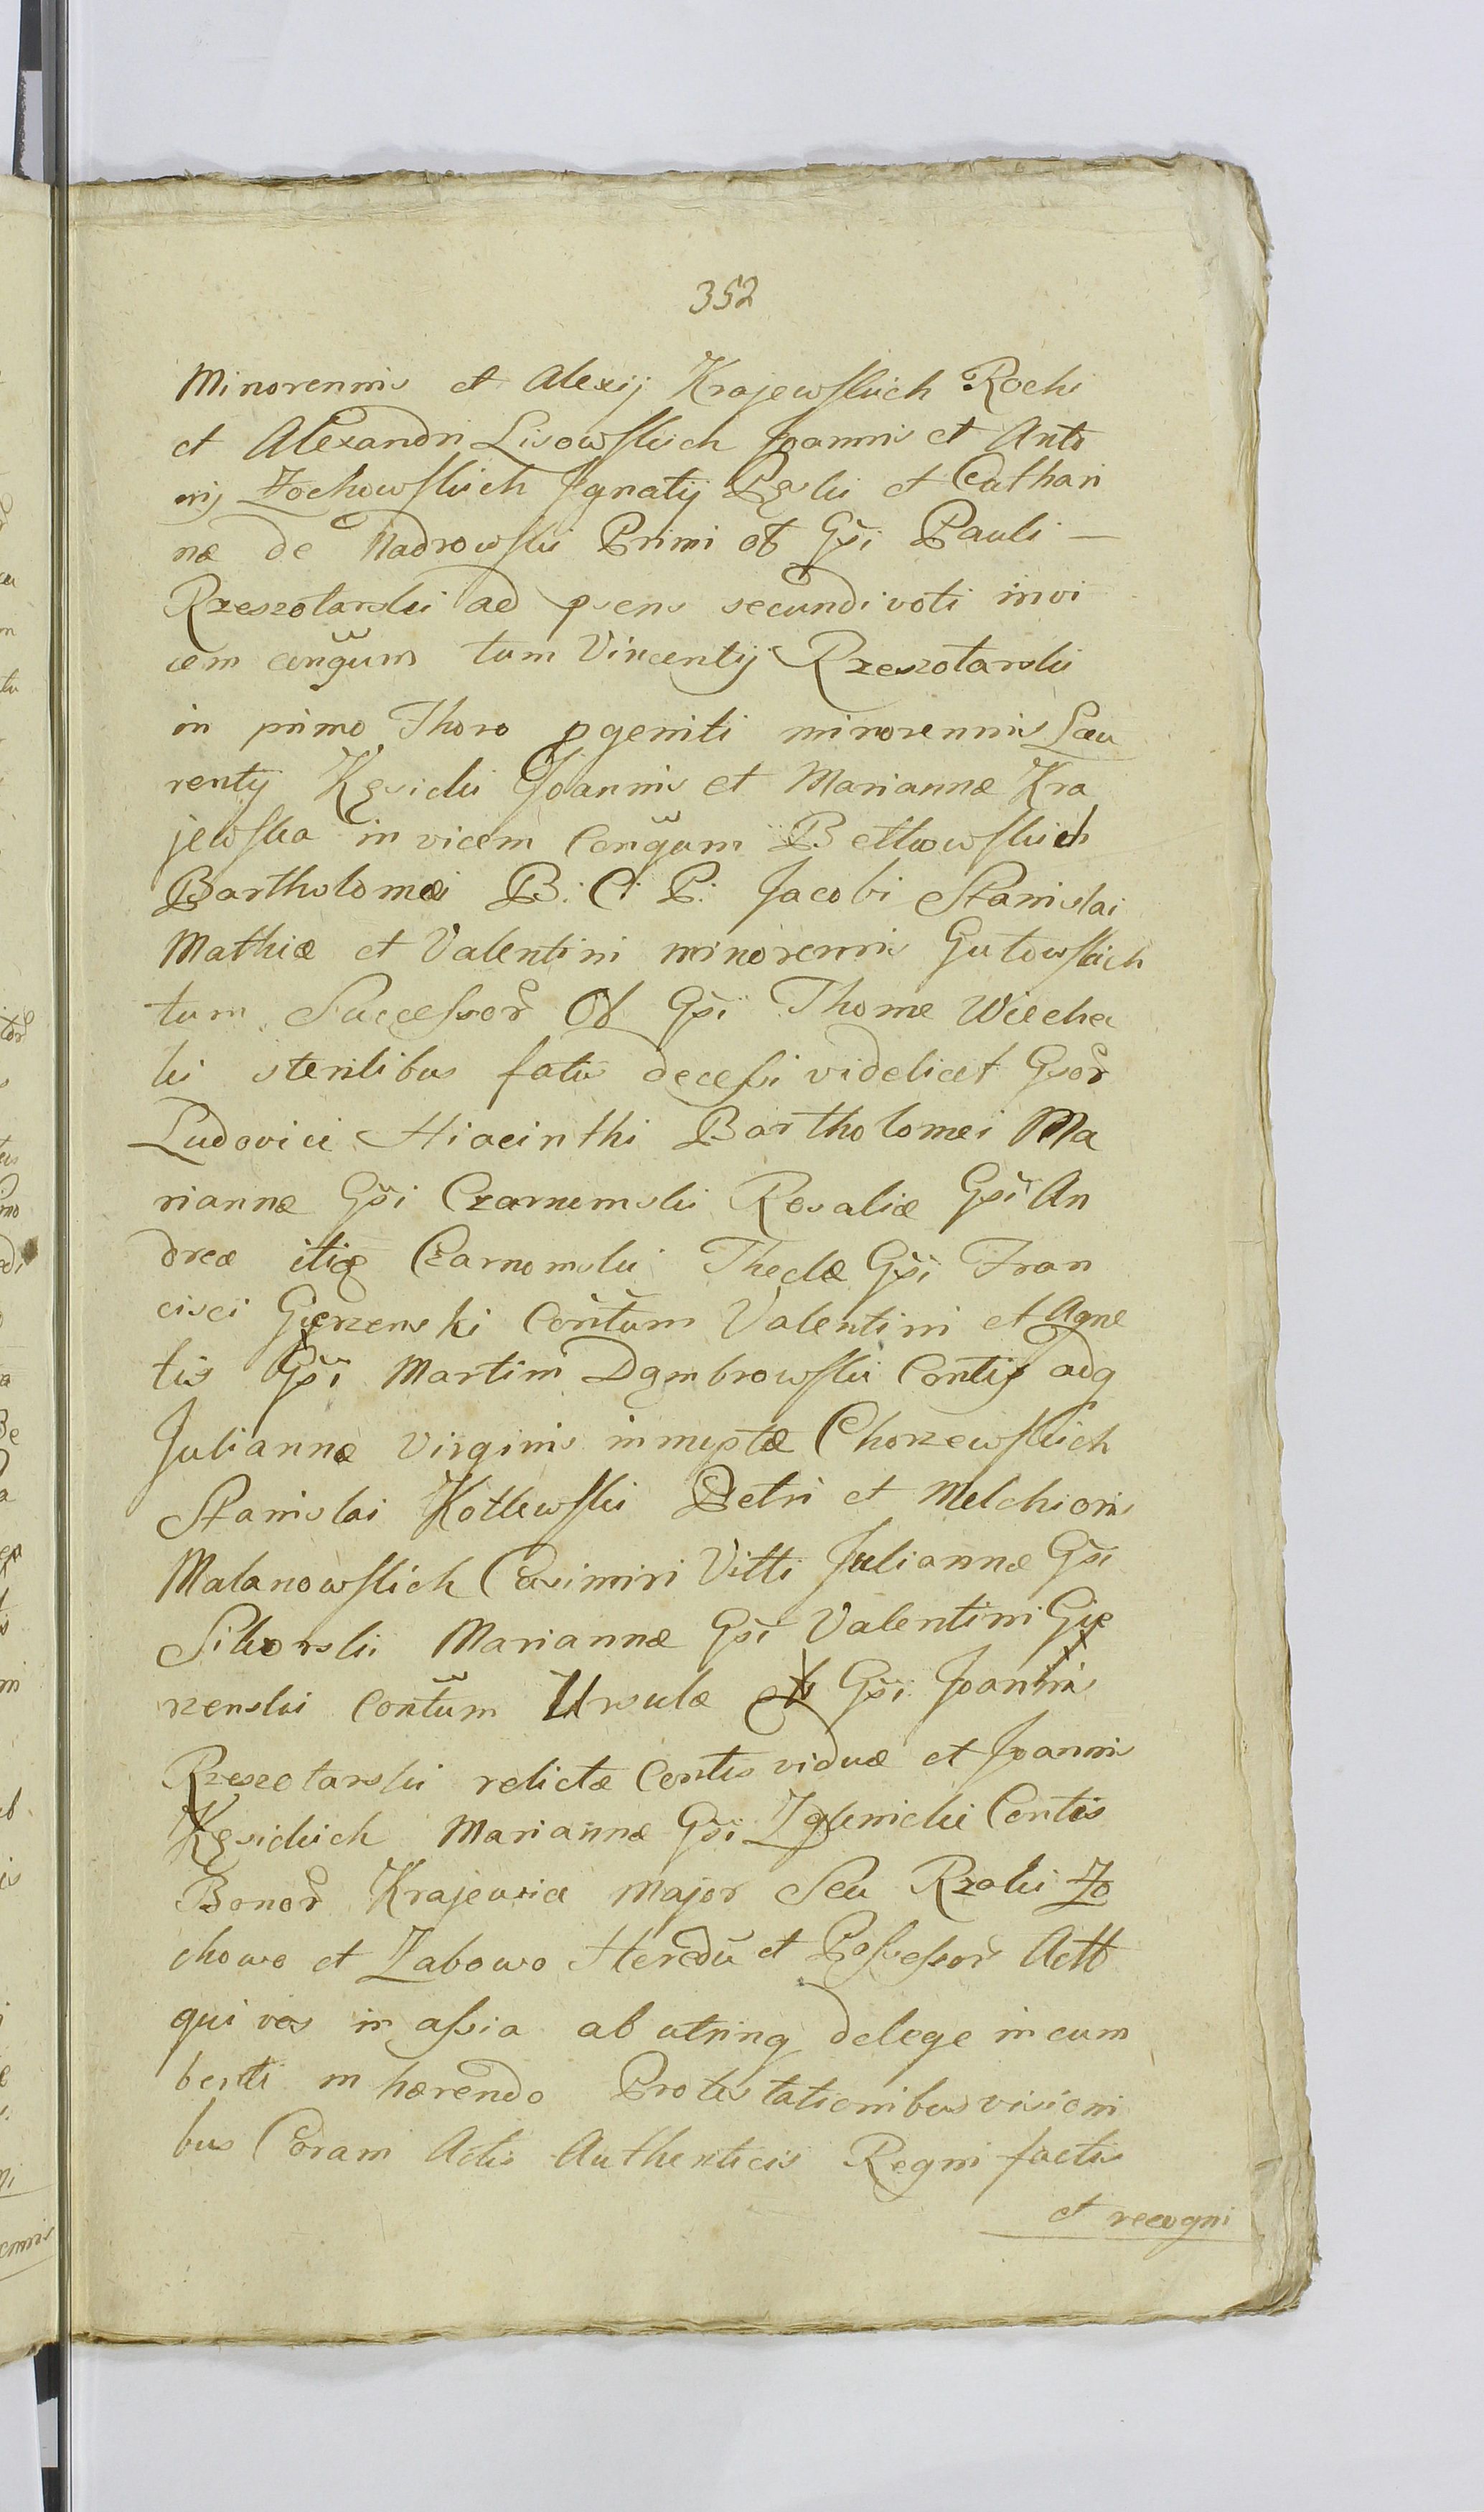 352
Minorennis et Alexij Krajewskich Rochi
et Alexandri Lisowskich Joannis et Anto
nij Żochowskich Ignatij Pęski et Cathari
næ de Nadrowski Primi ol Gsi Pauli —
Rzeszotarski ad psens secundi voti invi
cem congum tum Vincentij Rzeszotarski
in primo Thoro pgeniti minorennis Lau
rentij Kęsicki Joannis et Mariannæ Kra
jewska in vicem Congum Betkowskich
Bartholomæi B: C: P: Jacobi Stanislai
Mathiæ et Valentini minorennis Gutowskich
tum Successor Ol Gsi Thomæ Wiecha
ki sterilibus fatis decessi videlicet Gsor
Ludovici Hiacinthi Bartholomei Ma
riannæ Gsi Czarnomski Rosaliæ Gsi An
dreæ itiq Czarnomski Theclæ Gsi Fran
cisci Gierzenski Contum Valentini et Agne
tis Gsi Martini Dąmbrowski Contis adq
Juliannæ Virginis innuptæ Chorzewskich
Stanislai Kotlewski Petri et Melchioris
Malanowskich Casimiri Vitti Juliannæ Gsi
Sikorski Mariannæ Gsi Valentini Gie
rzenski Contum Ursulæ ol Gsi Joannis
Rzeszotarski relictæ Contis viduæ et Joannis
Kęsickich Mariannæ Gsi Zglenicki Contis
Bonor Krajewice Major Seu Rzaki Żo
chowo et Zabowo Heredu et Possessor Actt
qui vos in assia ab utrinq delege incum
benti in hærendo Protestationibus visioni
bus Coram Actis Authenticis Regni factis
et recogni